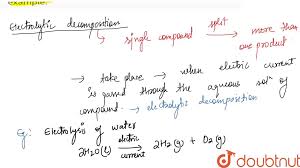 example.
Electrolytic decomposition
→ single compound split → more than one product
→ take place → when electric current
is passed through the aqueous solⁿ of
compound. → electrolytic decomposition
Eg: Electrolysis of water
2H₂O(l) electric current → 2H₂(g) + O₂(g)
doubtnut